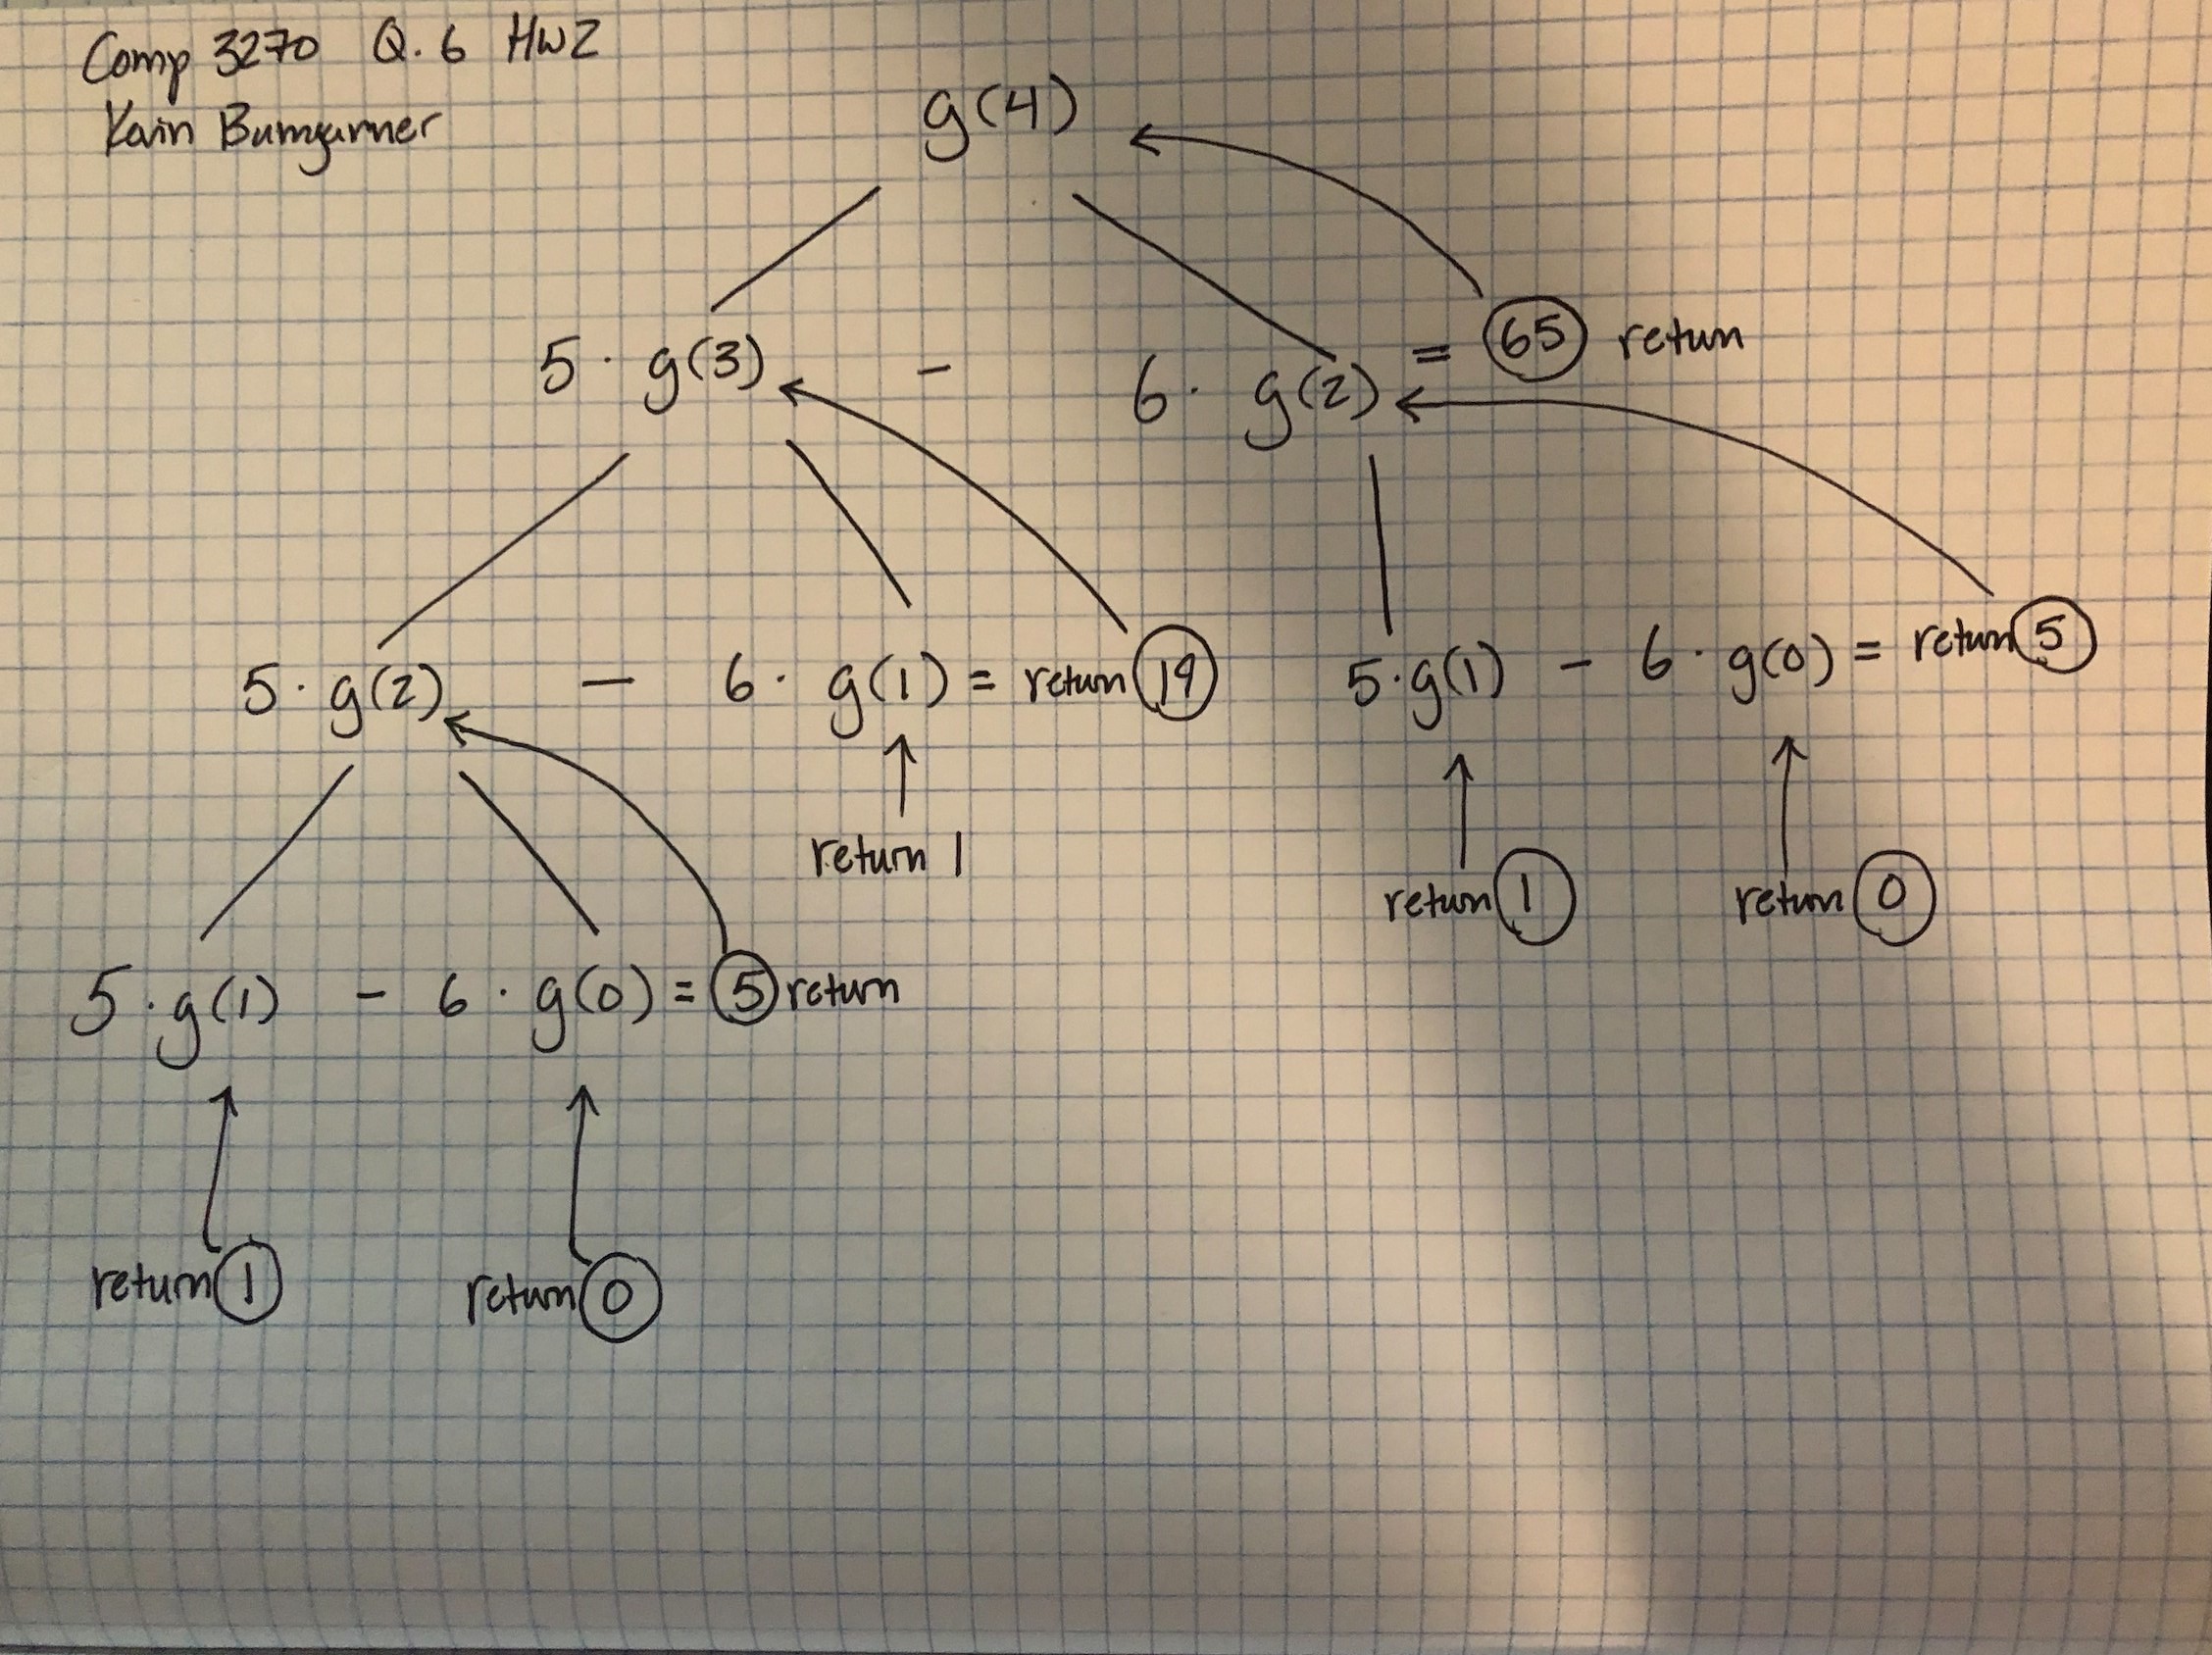 Comp 3270 Q. 6 HW2
Kain Bumgarner
g(4)
5 · g(3) - 6 · g(2) = 65 return
5 · g(2) - 6 · g(1) = return 19
5 · g(1) - 6 · g(0) = return 5
return 1
return 1 return 0
5 · g(1) - 6 · g(0) = 5 return
return 1 return 0